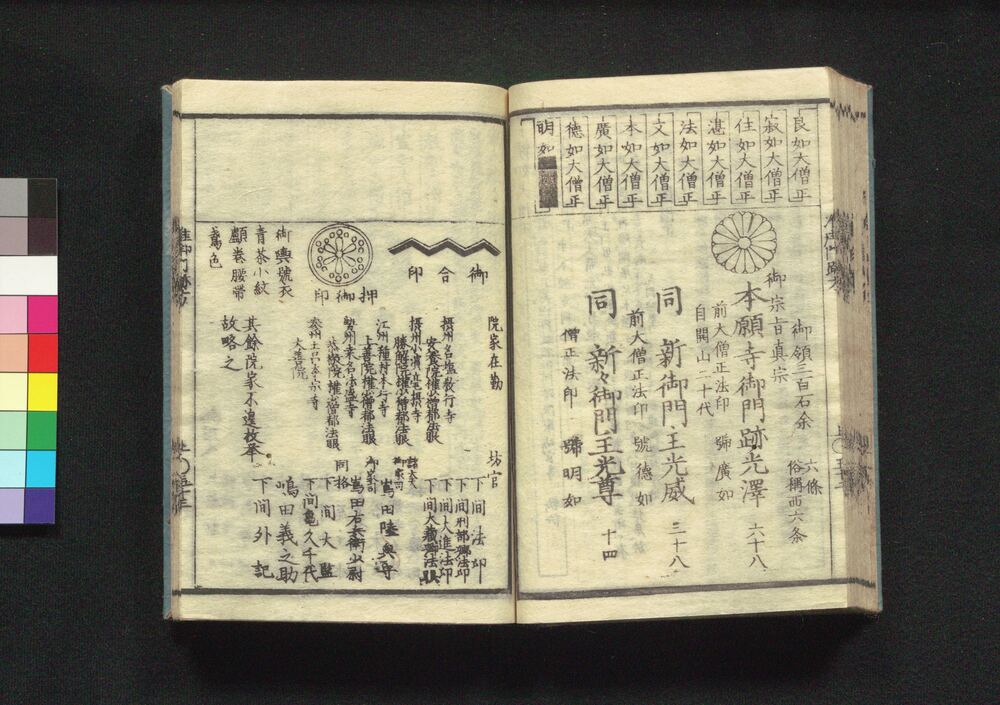 良如大僧正
寂如大僧正
住如大僧正
湛如大僧正
法如大僧正
文如大僧正
本如大僧正
廣如大僧正
德如大僧正
明如
御領三百石余
六條
俗稱西六条
御宗旨真宗
本願寺御門跡光澤 六十八
前大僧正法印 號廣如
自開山二十代
同 新御門主光威 三十八
前大僧正法印 號德如
同 新々御門主光尊 十四
僧正法印 號明如
御合印
押御印
御輿號衣
青茶小紋
顱巻腰帶
鳶色
院家在勤
摂州名塩教行寺
摂州小濱毫摂寺
勝願院權少僧都法眼
江州種村本行寺
上善院權少僧都法眼
勢州桑名本盛寺
叅州土呂本宗寺
大善院
其餘院家不遑枚挙
故略之
坊官
下間法印
下間刑部卿法印
下間大進法印
下間大蔵卿法眼
諸大夫
御家司
嶌田陸奥守
嶌田右兵衛少尉
同格
下間大監
下間亀久千代
嶋田義之助
下間外記